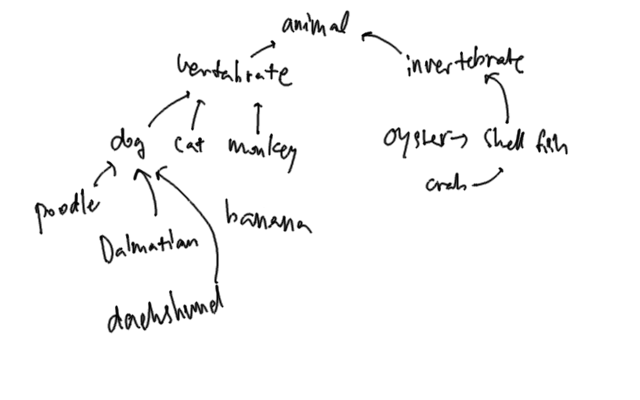 animal
vertabrate
invertebrate
dog cat monkey
oyster shell fish
crab
poodle
banana
Dalmatian
dachshund